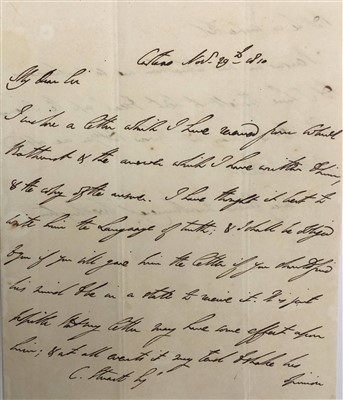 Cartaxo Nov. 29th 1810
My Dear Sir
I inclose a letter, which I have received from Colonel
Bathurst & the answer which I have written to him,
& the copy of the answer. I have thought it best to
write him the language of truth; & I shall be obliged
to you if you will give him the letter if you should find
his mind to be in a state to receive it. It is just
possible that my letter may have some effect upon
him; & at all events it may tend to shake his
C. Stuart Esq
opinion